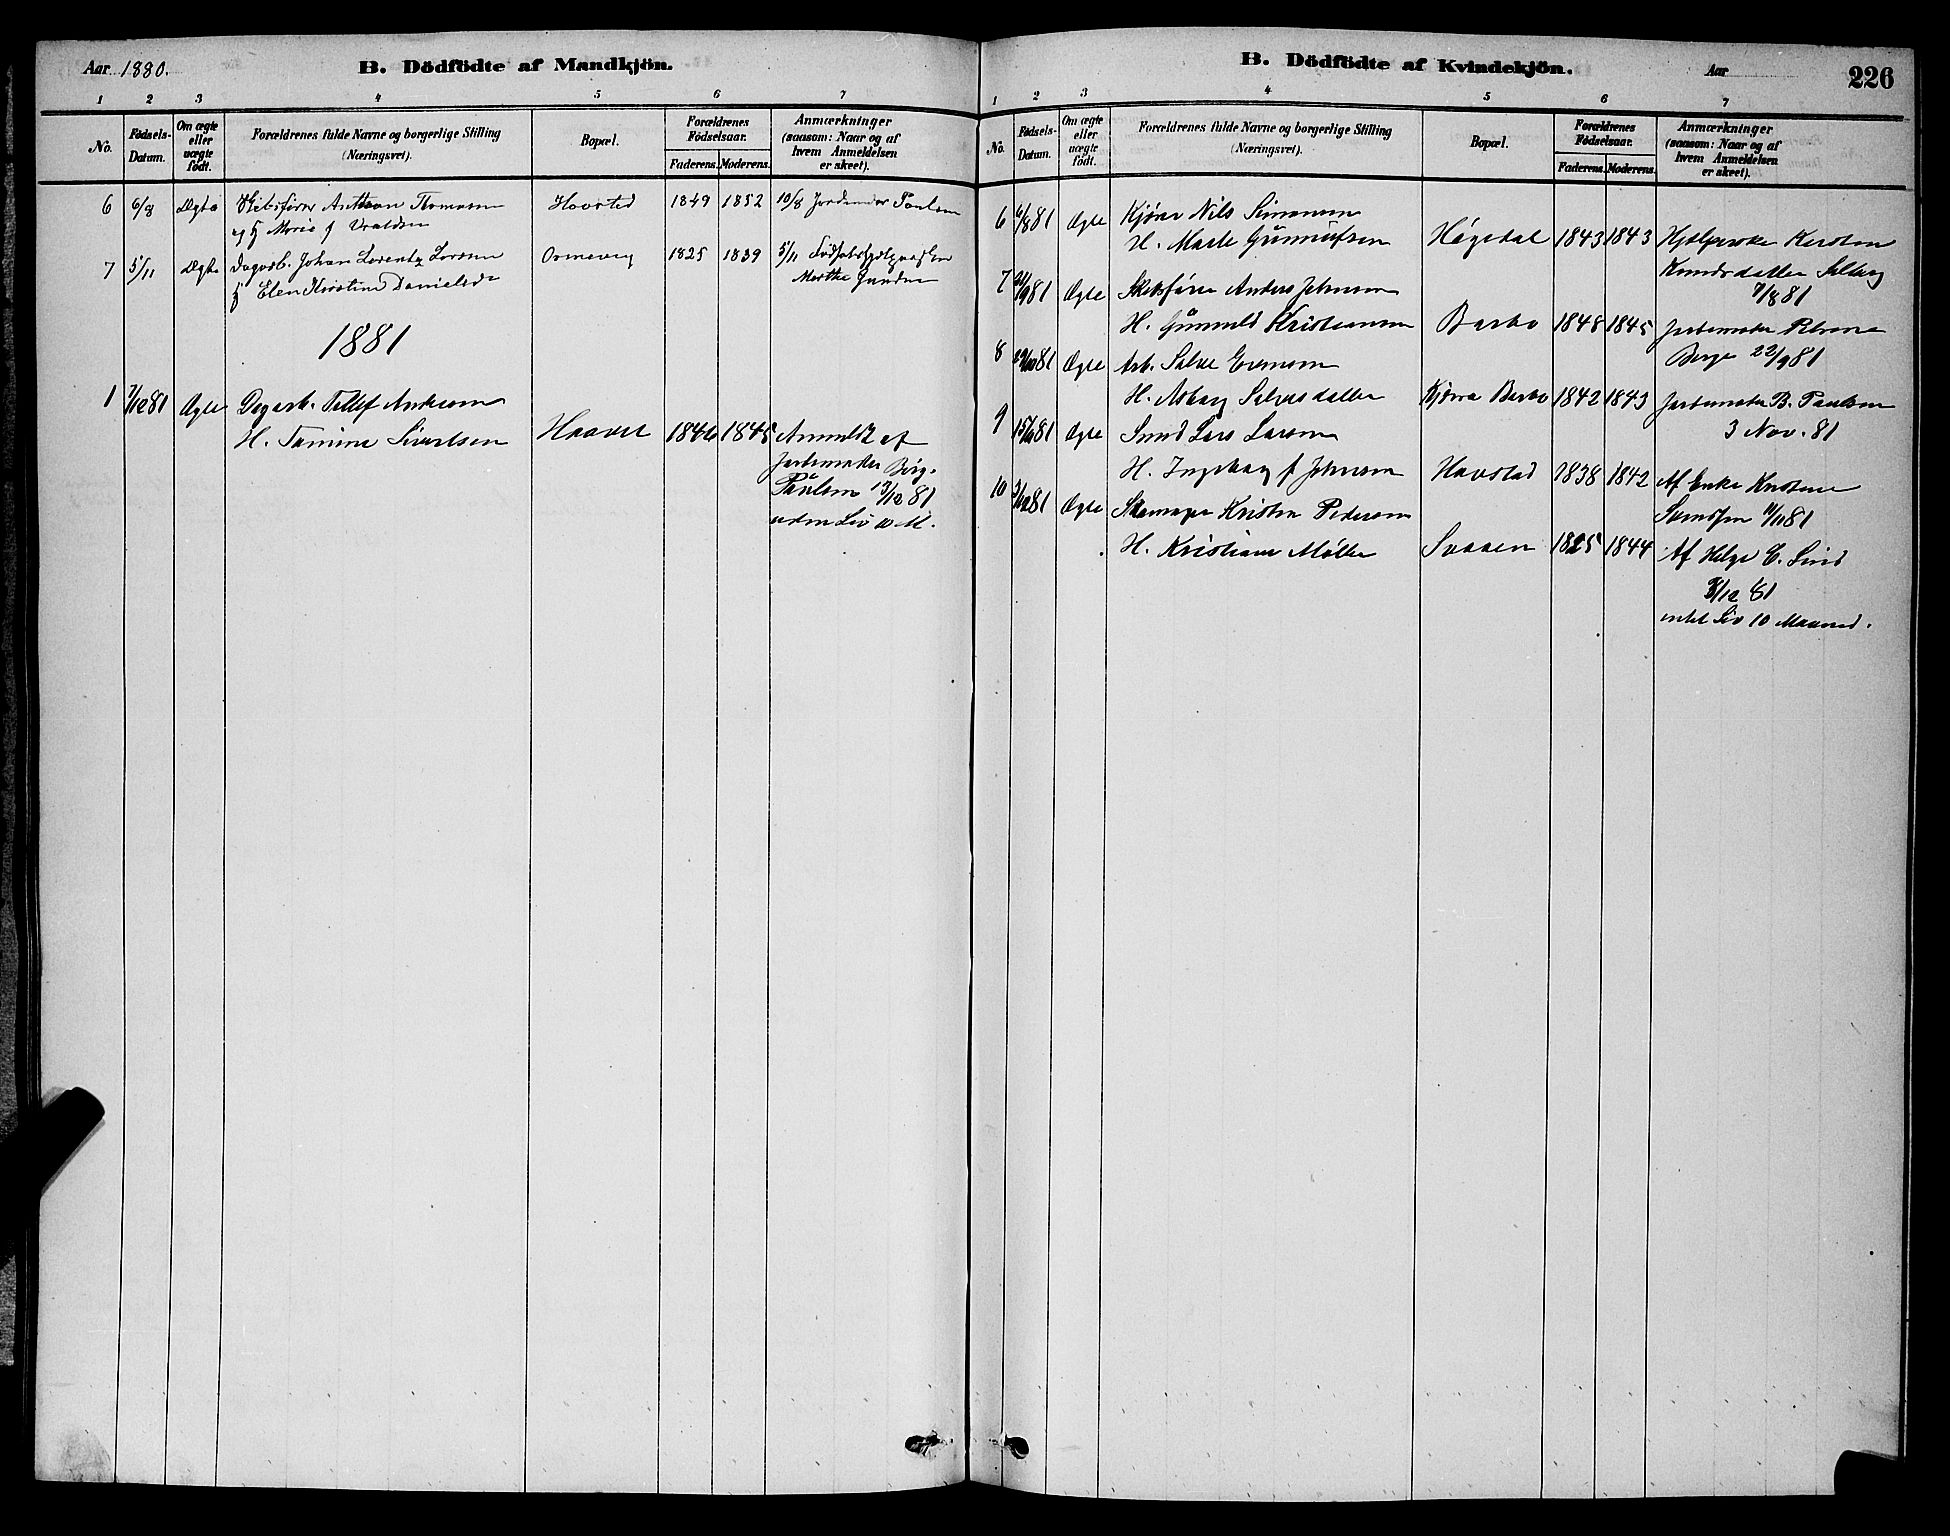 Aar 1880.
B. Dödfödte af Mandkjön.
1 2 3 4 5 6 7
No.
Födsels-Datum.
Om ægte eller uægte födt.
Forældrenes fulde Navne og borgerlige Stilling (Næringsvei).
Bopæl.
Forældrenes Födselsaar.
Faderens. Moderens.
Anmærkninger (saasom: Naar og af hvem Anmeldelsen er skeet).
6 6/8 Ægte Skibsfører Anthon Thomasen Havsted 1849 1852 10/8 Jordemoder Paulsen
og H Marie f
7 5/11 Ægte Dagarb. Johan Lorentz Larsen 1825 1839 5/11
H Elen Kirstine Danielsdr Marthe
1881
1 7/12 81 Ægte Dagarb. Tellef Andersen
H. Tamine Sivertsen Haavet 1846 1845 Anmeldt af
Jordemoder Børg.
Paulsen 13/12 81
uden Liv 10 M.
B. Dödfödte af Kvindekjön.
Aar
226
1 2 3 4 5 6 7
No.
Födsels-Datum.
Om ægte eller uægte födt.
Forældrenes fulde Navne og borgerlige Stilling (Næringsvei).
Bopæl.
Forældrenes Födselsaar.
Faderens. Moderens.
Anmærkninger (saasom: Naar og af hvem Anmeldelsen er skeet).
6 6/8 81 Ægte Nils Simonsen
H. Marte Gunnufsen Høgedal 1843 1843 Kersten
Knudsdatter Solberg
7/8 81
7 21/9 81 Ægte Skibsfører Anders Johnsen
H. Gunnuld Kristiansen Barbo 1848 1845 Jordemoder
Berge 22/9 81
8 29/10 81 Ægte Arb. Salve Evensen
H. Asborg Salvesdatter Kjørra Barbo 1842 1843 Jordemoder B. Paulsen
3 Nov. 81
9 15/11 81 Ægte Smed Lars Larsen
H. Ingeborg f Johnsen Havstad 1838 1842 Af Enke Kristine
11/11 81
10 3/12 81 Ægte Skomager Kristen Pedersen
H. Kristiane Møller Svaaen 1825 1844 Af Helge E. Lind
3/12 81
intet Liv 10 Maaned.